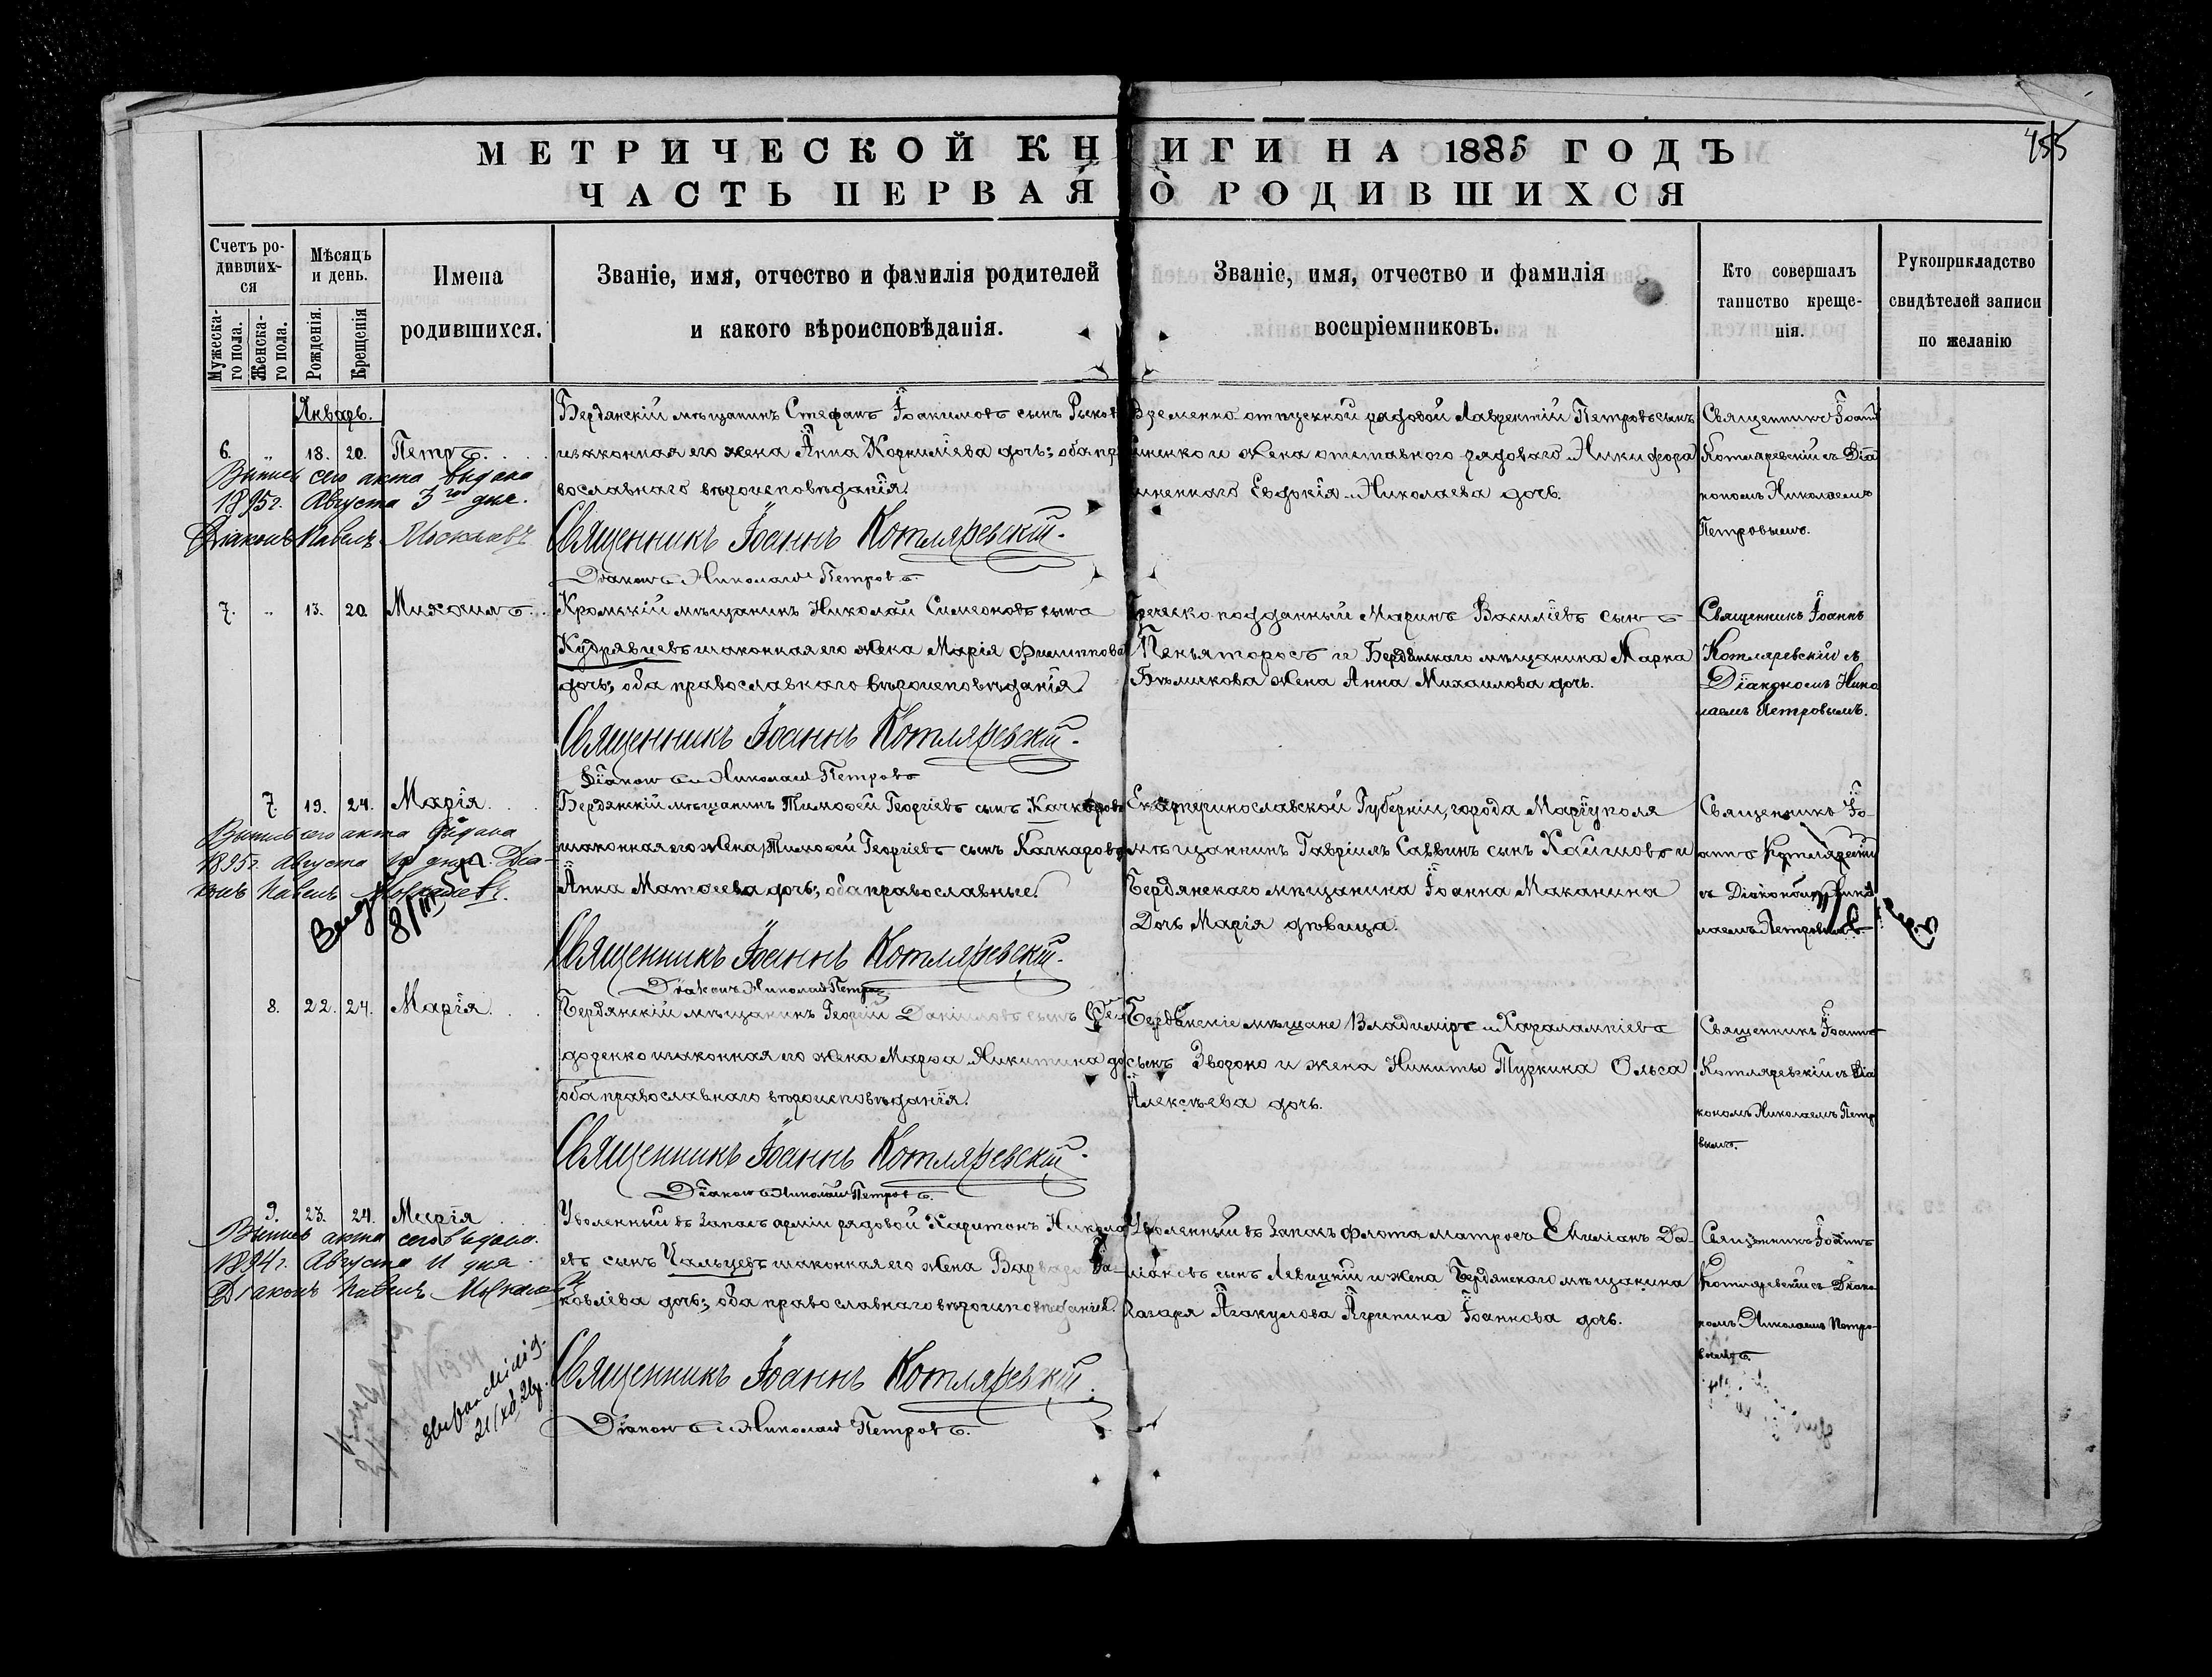 МЕТРИЧЕСКОЙ КНИГИ НА 1885 ГОДЪ
155
ЧАСТЬ ПЕРВАЯ О РОДИВШИХСЯ
Счетъ ро-
дивших-
ся
Мужеска-
го пола.
Женска-
го пола.
Мѣсяцъ
и день.
Рожденія.
Крещенія
Имена
родившихся.
Званіе, имя, отчество и фамилія родителей
и какого вѣроисповѣданія.
Званіе, имя, отчество и фамилія
воспріемниковъ.
Кто совершалъ
таинство креще-
нія.
Рукоприкладство
свидѣтелей записи
по желанію
Январь.
6. „ 18. 20. Петръ
Выпись сего акта выдана
1895г. Августа 3го дня.
Діаконъ Павелъ
Бердянскій мѣщанинъ Стефанъ Іоакимовъ сынъ
изаконная его жена Анна Корниліева дочь; оба пр
вославнаго вѣроисповѣданія.
Священникъ Іоаннъ Котляревскій.
Діаконъ Николай Петровъ.
Временно отпускной рядовой Лаврентій Петровъ сынъ
и жена отставного рядоваго Никифора
Евдокія Николаева дочь.
Священникъ Іоаннъ
Котляревскій съ Діа
кономъ Николаемъ
Петровымъ.
7. „ 13. 20. Михаилъ
Кромскій мѣщанинъ Николай Симеоновъ сынъ
Кудрявцевъ изаконная его жена Марія Филиппова
дочь; оба православнаго вѣроисповѣданія.
Священникъ Іоаннъ Котляревскій.
Діаконъ Николай Петровъ
Греческо-подданный Маринъ Василіевъ сынъ
и Бердянскаго мѣщанина Марка
жена Анна Михаилова дочь.
Священникъ Іоаннъ
Котляревскій съ
Діакономъ Нико
лаемъ Петровымъ.
7. 19. 24. Марія.
Выпись сего акта выдана
1895г. Августа дня. Діа-
конъ Павелъ
Бердянскій мѣщанинъ Тимофей Георгіевъ сынъ Качкаровъ
изаконная его жена, Тимофей Георгіевъ сынъ Качкаровъ
Анна Матѳеева дочь; оба православные.
Священникъ Іоаннъ Котляревскій.
Діаконъ Николай Петровъ
Екатеринославской Губерніи, города Маріуполя
мѣщанинъ Гавріилъ Саввинъ сынъ и
Бердянскаго мѣщанина Іоанна Маканина
Дочь Марія дѣвица.
Священникъ Іо-
аннъ Котляревскій
съ Діакономъ Нико
лаемъ Петровымъ.
8. 22. 24. Марія.
Бердянскій мѣщанинъ Георгій Даніиловъ сынъ Фе
доренко изаконная его жена Марѳа Никитина до
оба православнаго вѣроисповѣданія.
Священникъ Іоаннъ Котляревскій.
Діаконъ Николай Петровъ.
Бердянскіе мѣщане Владиміръ Харалампіевъ
сынъ и жена Никиты Туркина Ольга
Алексѣева дочь.
Священникъ Іоаннъ
Котляревскій съ Діа
кономъ Николаемъ Петр
вымъ.
9. 23. 24. Марія
Выпись акта сего выдана.
1894г. Августа 11 дня
Діаконъ Павелъ
Уволенный въ запасъ арміи рядовой Харитонъ Никола
евъ сынъ Чальцевъ изаконная его жена Варвара Іа-
ковлева дочь; оба православнаго вѣроисповѣданія.
Священникъ Іоаннъ Котляревскій.
Діаконъ Николай Петровъ.
Уволенный въ запасъ флота матросъ Емиліанъ Да-
міановъ сынъ Левицкій и жена Бердянскаго мѣщанина
Лазаря Агакулова Агрипина Іоаннова дочь.
Священникъ Іоаннъ
Котляревскій съ Діако
номъ Николаемъ Петро-
вымъ.